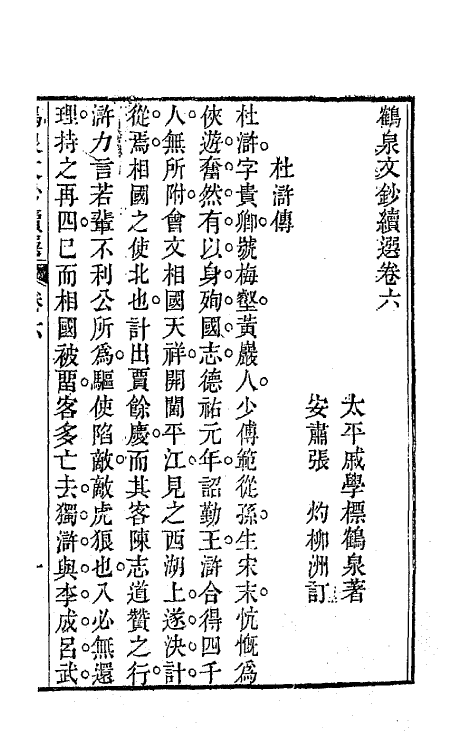 鶴泉文鈔續選卷六
太平戚學標鶴泉著
安肅張　灼柳洲訂
杜滸傳
杜滸。字貴卿。號梅壑。黃巖人。少傅範從孫。生宋末。忼慨爲
俠遊。奮然有以身殉國志。德祐元年。詔勤王。滸合得四千
人。無所附。會文相國天祥開閫平江。見之西湖上。遂決計
從焉。相國之使北也。計出賈餘慶。而其客陳志道贊之行。
滸力言若輩不利公所爲。驅使陷敵。敵虎狼也。入必無還
理。持之再四。已而相國被畱。客多亡去。獨滸與李戚呂武
卷六
一